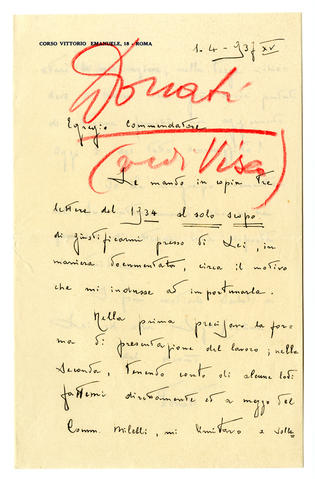 CORSO VITTORIO EMANUELE, 18 - ROMA
1-4-937 XV
Donati
Egregio Commendatore
(vedi Visa)
Le mando in copia tre
lettere del 1934 al solo scopo
di giustificarmi presso di Lei, in
maniera documentata, circa il motivo
che mi indusse ad importunarla.
Nella prima precisavo la for
ma di presentazione del lavoro; nella
seconda, tenendo conto di alcune lodi
fattemi direttamente ed a mezzo del
Comm. Milelli, mi limitavo a solle